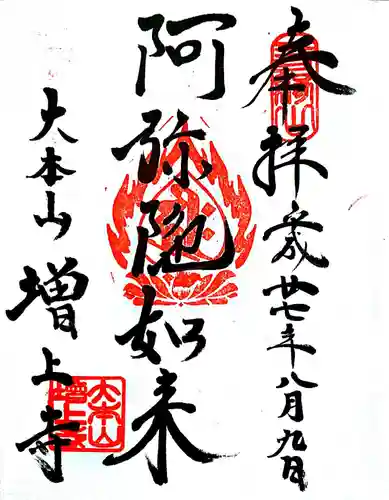 奉拝
平成廿七年八月九日
阿弥陀如来
大本山
増上寺
大本山
増上寺